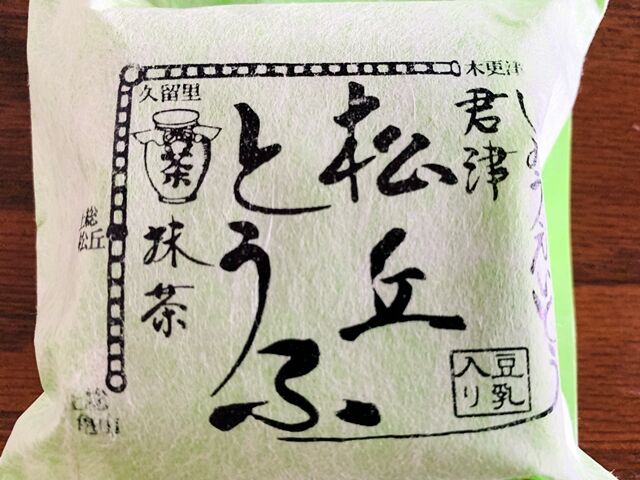 木更津
君津
松丘
とうふ
久留里
茶
抹茶
上総
松丘
上総
亀山
豆乳
入り